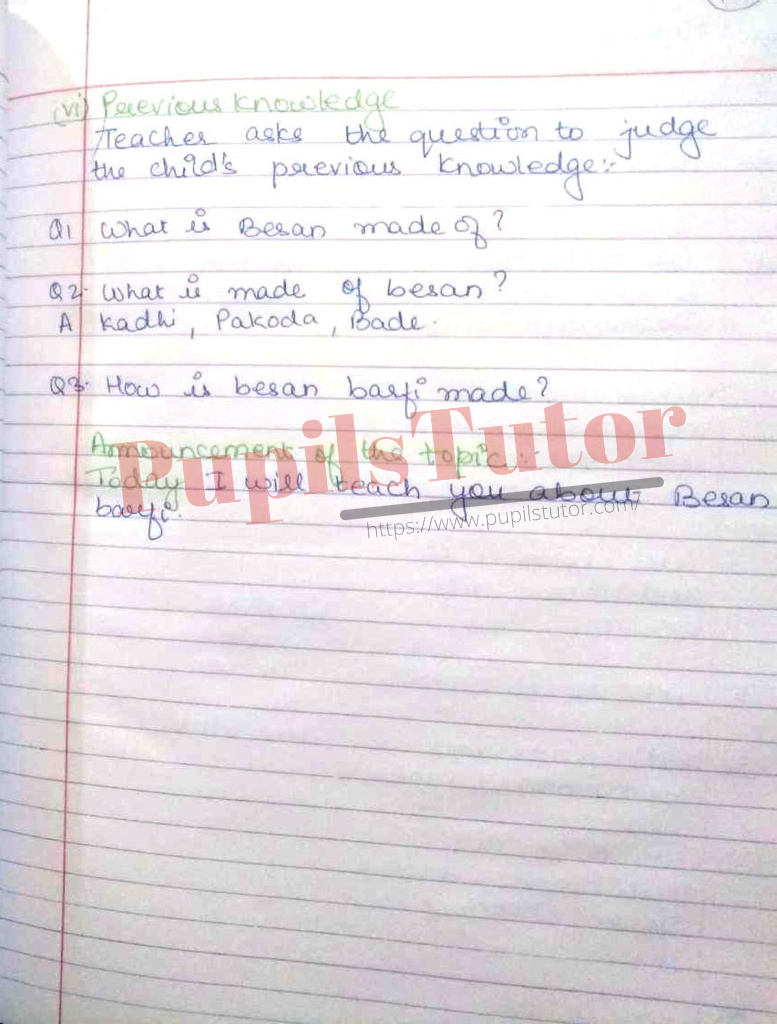 (vi) Previous Knowledge
Teacher asks the question to judge
the child's previous knowledge:-
Q1 What is Besan made of?
Q2. What is made of besan?
A Kadhi, Pakoda, Bade.
Q3. How is besan barfi made?
Announcement of the topic:
Today I will teach you about Besan
barfi.
PupilsTutor
https://www.pupilstutor.com/